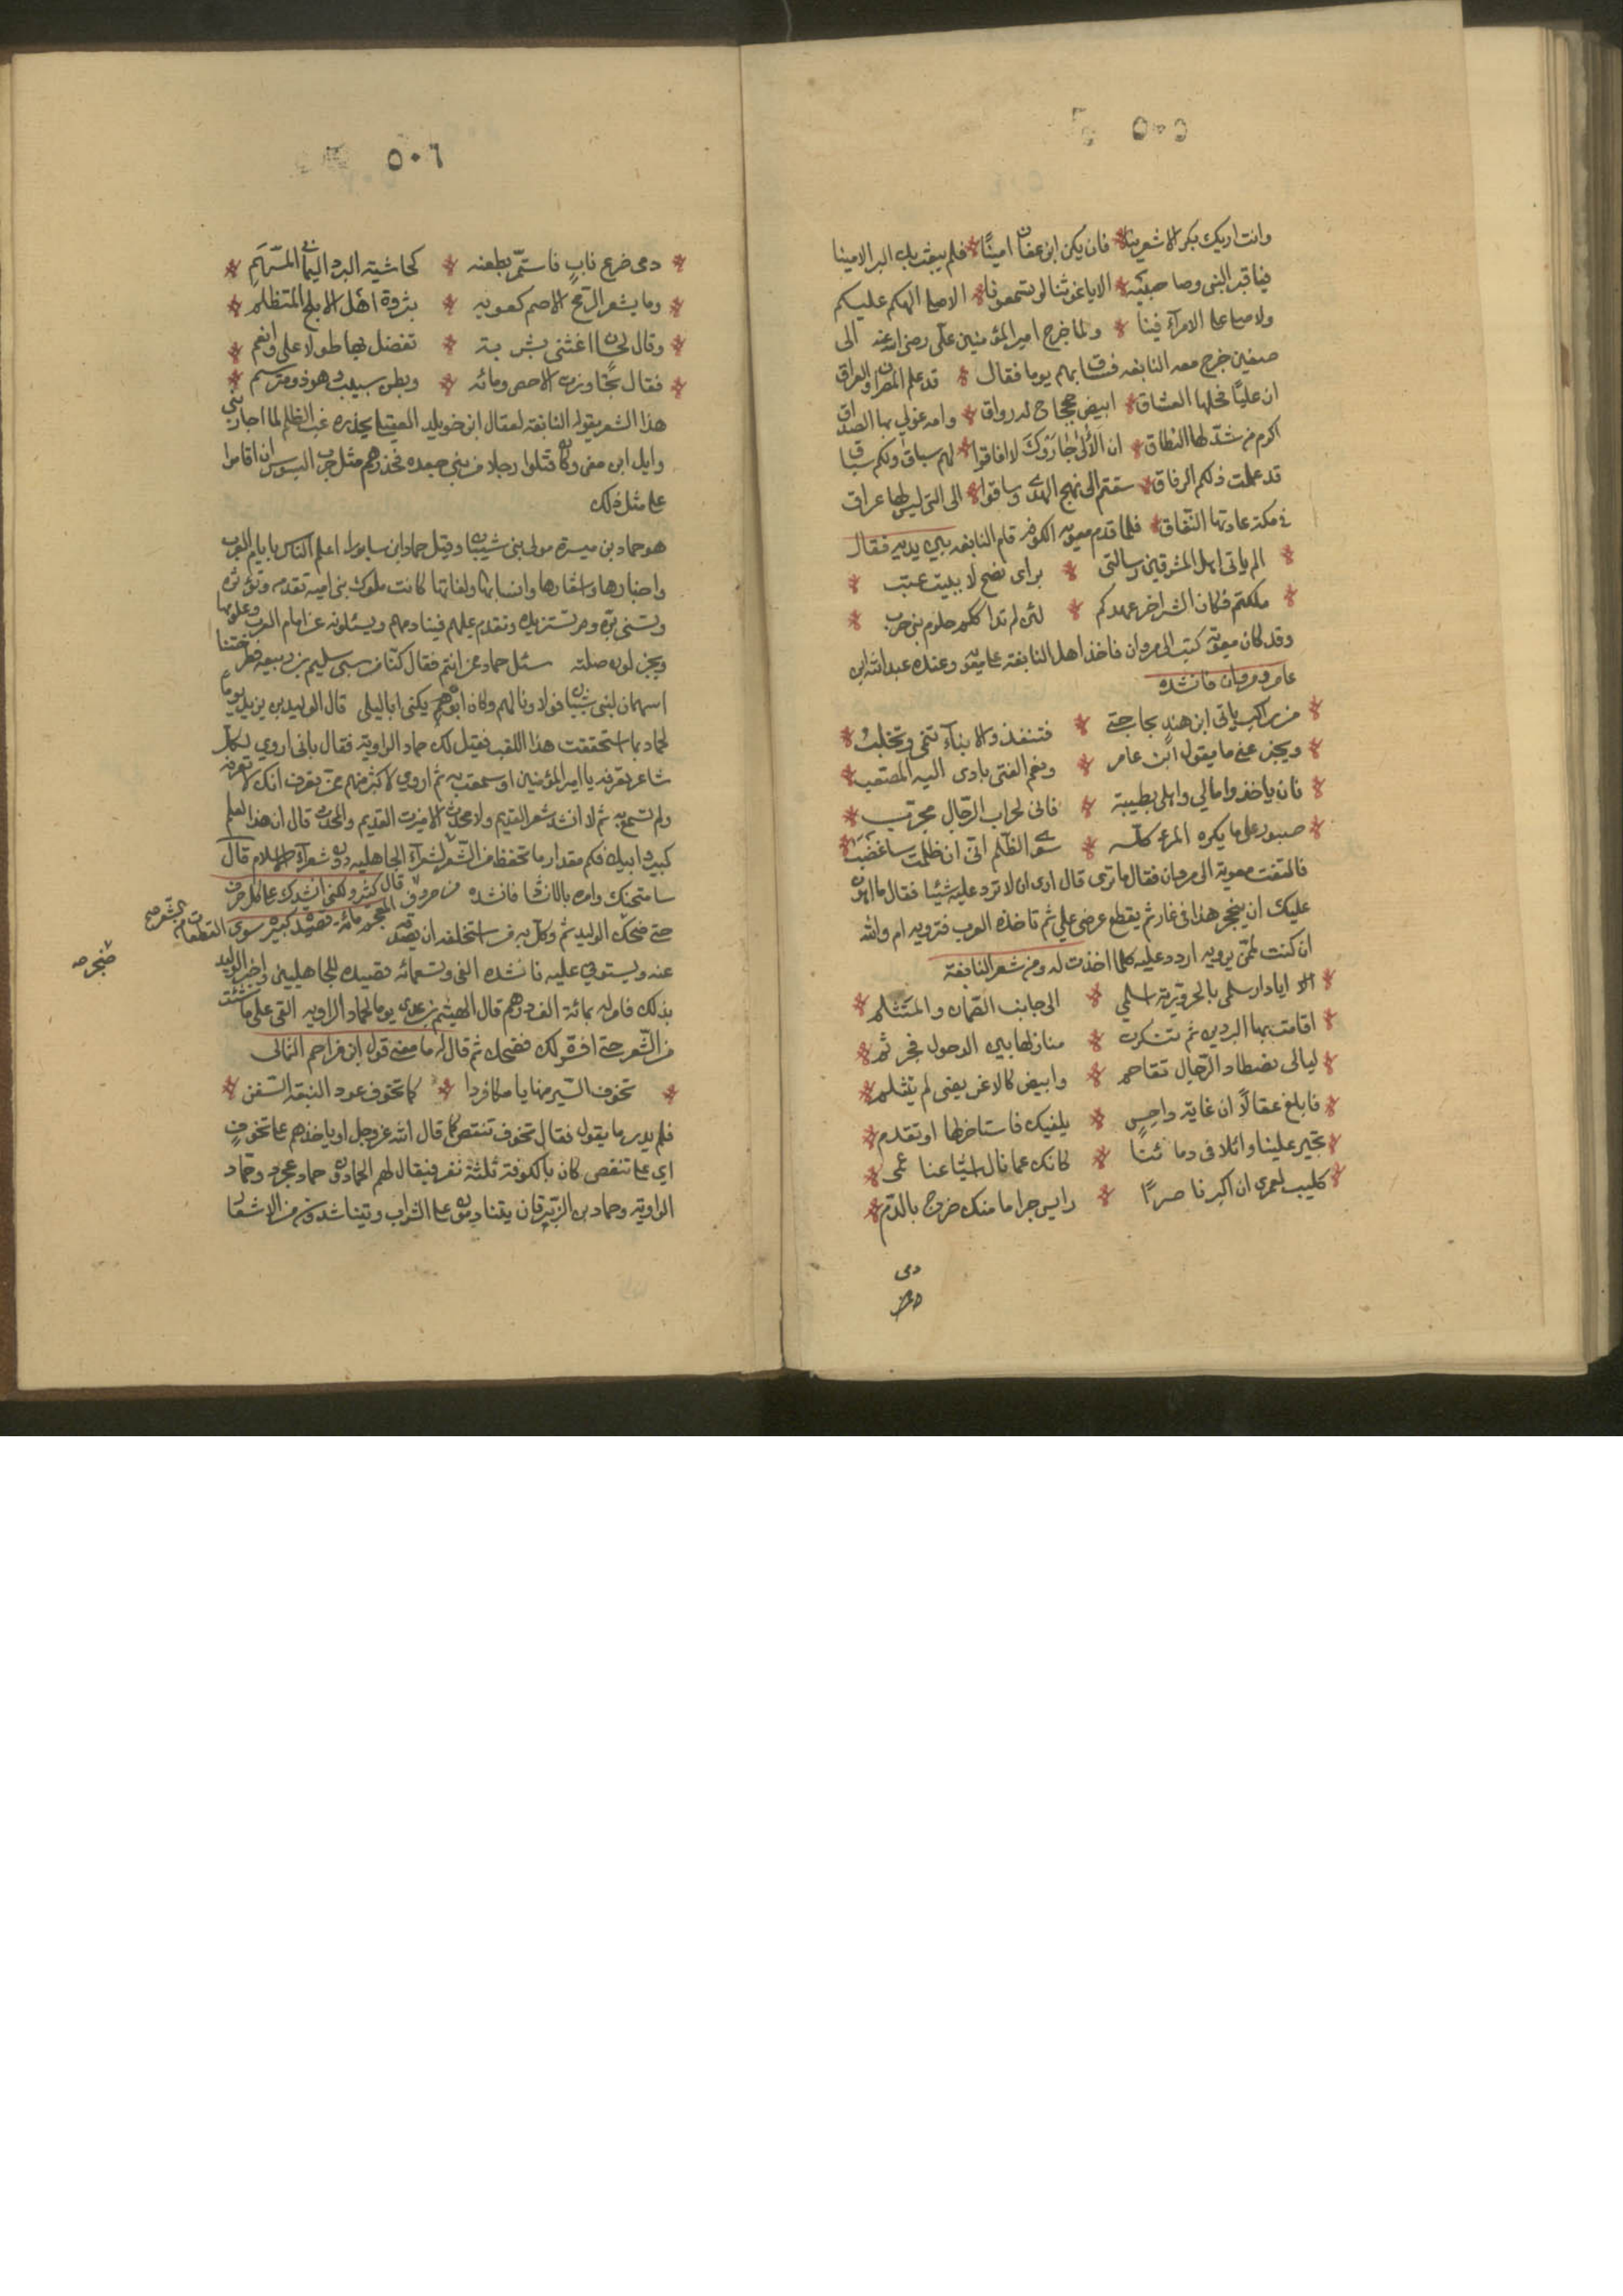 ٥٠٥
وانت اريك بكر الاشعرينا * فان يكن ابن عفان امينًا * فلم يبعث بك البر الامينا
فيا قبر النبي وصاحبيه * الا يا غوثنا لو تسمعونا * الا صلى الهكم عليكم
ولا صلى على الامرآء فينا * ولما خرج امير المؤمنين علي رضي الله عنه الى
صفين خرج معه النابغه فساق بهم يوما فقال * قد علم المصران والعراق
ان عليًا فحلها العتاق * ابيض جحجاح له رواق * وامه غولي بها الصداق
اكرم من شدّ لها النطاق * ان الألى جاروك لا افاقوا * لهم سباق ولكم سباق
قد علمت ذلكم الرفاق * سقتم الى نهج الهدى وساقوا * الى التي ليس لها عراق
في مكة عادتها النّفاق * فلما قدم معوية الكوفه قام النابغه بين يديه فقال
* الم ياتي اهل المشرقين رسالتي * براى نصح لا يبيت عتب *
* ملكتم فكان الشر اخر عهدكم * لئن لم تداكلكم حلوم بني حرب *
وقد كان معوية كتب الى مروان فاخذ اهل النابغة على معوية وعنده عبد الله ابن
عامر ومروان فانشده
* من راكب ياتي ابن هند بحاجتي * فتنفذ والابنآء تنمى وتجلب *
* ويجبر عني ما يقول ابن عامر * ونعم الفتى يادى اليه المعصب *
* فان ياخذوا مالي واهلي بطيبة * فاني لحراب الرّجال مجرّب *
* صبور على ما يكره المرء كله * سوى الظّلم انّي ان ظلمت ساغضب *
فالتفت معوية الى مروان فقال ما ترى قال ارى ان لا ترد عليه شيئا فقال ما اهون
عليك ان ينجحر هذا في غار ثم يقطع عرضي علي ثم تاخذه العرب فترويه ام والله
ان كنت لمن يرويه اردد عليه كلما اخذت له ومن شعر النابغة
* الا ايا دار سلمى بالحرورية اسلمي * الى جانب الصّمان والمتثلم *
* اقامت بها البردين ثم تذكرت * منازلها بين الدحول فجرثم *
* ليالي تصطاد الرّجال تفاحم * وابيض كالاغريض لم يتثلم *
* فابلغ عقالًا ان غاية داحس * بلفيك فاستاخر لها او تقدم *
* تجير علينا وائلا في دمائنا * كانك عما نال اشياعنا عمى *
* كليب لعمرى ان اكبر ناصرًا * وايسر جراما منك ضرج بالدّم *
رمى
ضرع
٥٠٦
* رمى ضرع ناب فاستمر بطعنه * كحاشية البرد اليماني المسهم *
* وما يشعر الرّمح الاصم كعوبه * بثروة اهل الابلخ المتظلم *
* وقال لجساس اغثني بشربة * تفضل بها طولا علي وانعم *
* فقال تجاوزت الاحص ومائه * وبطن شبيث وهو ذو مترسم *
هذا الشعر يقوله النابغة لعقال ابن خويلد العقيلي يحذره غب الظلم لما اجار بني
وايل ابن معن وكانوا قتلوا رجلا من بني جعده فحذرهم مثل حرب البسوس ان اقاموا
على مثل ذلك
هو حماد بن ميسرة مولى بني شيبان وقيل حماد ابن سابور اعلم الناس بايام العرب
واخبارها واشعارها وانسابها ولغاتها كانت ملوك بني اميه تقدمه وتؤثره
وتسنى بره وتستزيره وتقدم عليهم فينادمهم ويسئلونه عن ايام العرب وعلومها
ويجزلون صلته سئل حماد عن انتم فقال كنا من سبي سليم بن ربيعه فطرحتنا
اسهمان لبني شيبان فولاونا لهم وكان ابوهم يكنى ابا ليلى قال الوليد بن يزيد يوما
لحماد بما استحققت هذا اللقب فقيل لك حماد الراوية فقال باني اروي لكل
شاعر تعرفه يا امير المؤمنين او سمعت به ثم اروي لاكثر منهم ممن تعرف انك لا تعرفه
ولم تسمع به ثم لا انشد شعر القديم ولا محدث الا ميزت القديم والمحدث قال ان هذا لعلم
كبير وابيك فكم مقدار ما تحفظ من الشّعر لشعرآء الجاهليه دون شعرآء الاسلام قال
سامتحنك وامره بالانشاد فانشده من حروف قال كثير ولكني انشدك على كل حرف
المعجم مائة قصيدة كبيرة سوى المقطعات الشعر صح
حتى ضجر الوليد ثم وكل به من استخلفه ان يصدقه
ضجر صح
عنه ويستوفي عليه فانشده الفي وتسعمائه قصيدة للجاهليين واخبر الوليد
بذلك فامر له بمائة الف درهم قال الهيثم بن عدي يوما لحماد الراويه القى علي ما شئت
من الشّعر حتى افسره لك فضحك ثم قال له ما معنى قول ابن مزاحم الثمالي
* تخوف السير منها تامكا قردا * كما تخوف عود النبعة السفن *
فلم يدر ما يقول فقال تخوف تنقص كما قال الله عز وجل او ياخذهم على تخوف
اي على تنقص كان بالكوفة ثلثة نفر فيقال لهم الحمادون حماد عجرد وحمّاد
الراوية وحماد بن الزّبرقان يتنادمون على الشراب ويتناشدون من الاشعار